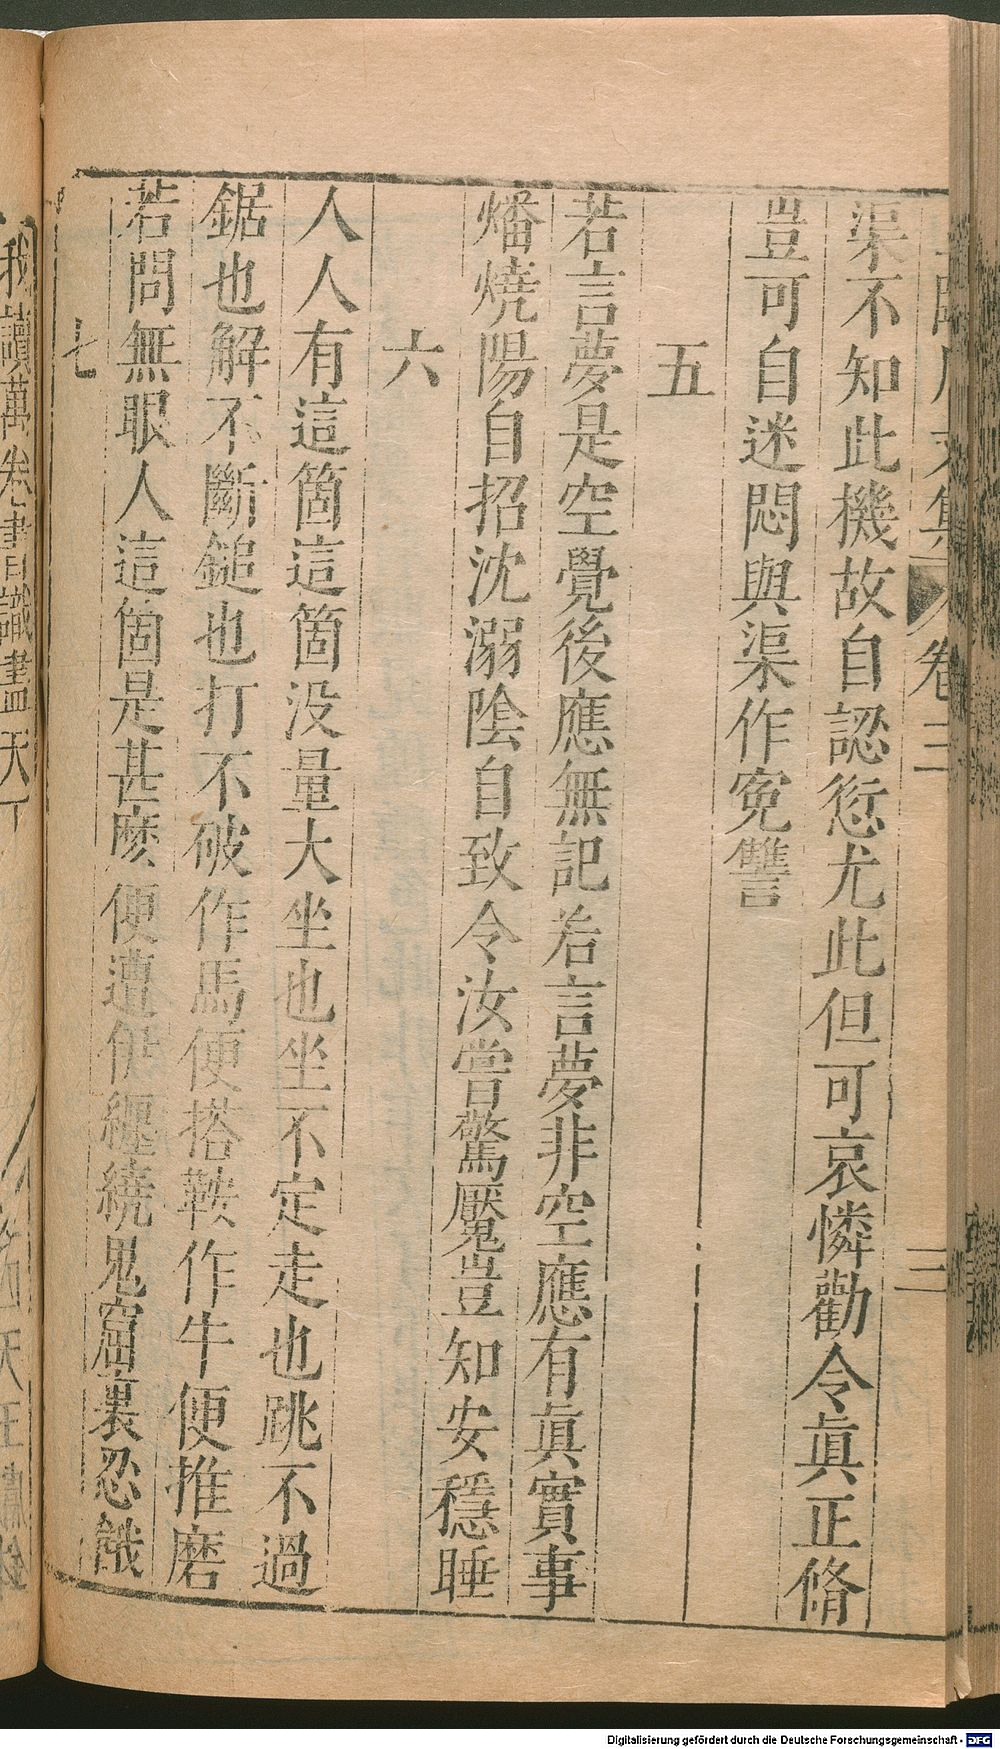 卷三
三
渠不知此機故自認愆尤此但可哀憐勸令真正脩
豈可自迷悶與渠作寃讐
五
若言夢是空覺後應無記若言夢非空應有真實事
燔燒陽自招沈溺陰自致令汝嘗驚魘豈知安穩睡
六
人人有這箇這箇没量大坐也坐不定走也跳不過
鋸也解不斷鎚也打不破作馬便搭鞍作牛便推磨
若問無眼人這箇是甚麼便遭伊纏繞鬼窟裏忍餓
七
我讀萬卷書識盡天
Digitalisierung gefördert durch die Deutsche Forschungsgemeinschaft - DFG